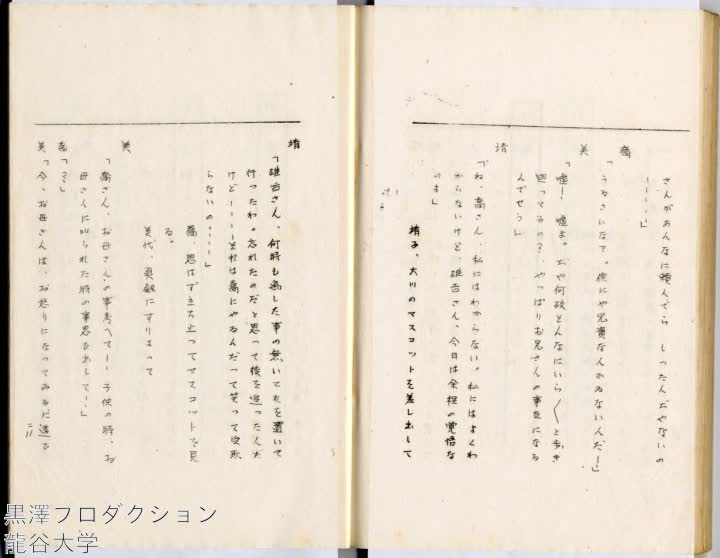 さんがあんなに頼んでら しったんぢやないの
ーーーー」
喬「うるさいなア。俺にや兄貴なんかゐないんだー」
美「嘘ー 嘘よ。ぢや何故そんなにいら〳〵と歩き
思ってるの？、やっぱりお兄さんの事気になる
んでせう」
靖「ね、喬さん、私にはわからない。私にはよくわ
からないけど、雄吉さん、今日は余程の覚悟な
のよ」
靖子、大川のマスコットを差し出して
靖「雄吉さん、何時も離した事の無いこれを置いて
行ったわ。忘れたのだと思って後を追ったんだ
けどーーーそれは喬にやるんだって笑って受取
らないのーーー」
喬、思はず立ち止ってマスコットを見
る。
美代、真剣にすりよって
美「喬さん、お母さんの事考へてーー子供の時、お
母さんに叱られた時の事思ひ出してー」
喬「？」
美「今、お母さんは、お怒りになってゐるに違ひ
黒澤プロダクション
龍谷大学